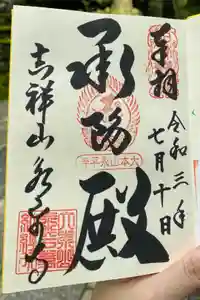 奉拝
令和三年
七月十日
承陽殿
大本山永平寺
吉祥山永平寺